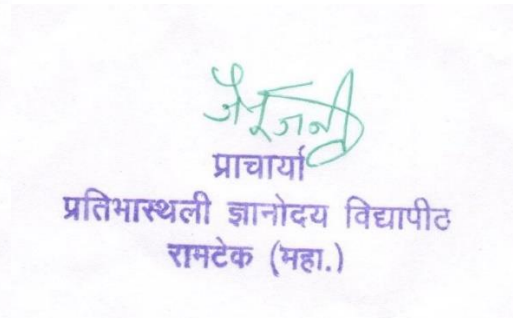 प्राचार्या
प्रतिभास्थली ज्ञानोदय विद्यापीठ
रामटेक (महा.)